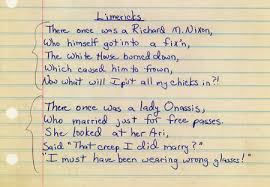 Limericks
There once was a Richard M. Nixon,
Who himself got into a fix'n,
The White House borned down,
Which caused him to frown,
Now what will I put all my chicks in?!
There once was a lady Onassis,
Who married just for free passes.
She looked at her Ari,
Said "That creep I did marry?"
"I must have been wearing wrong glasses!"